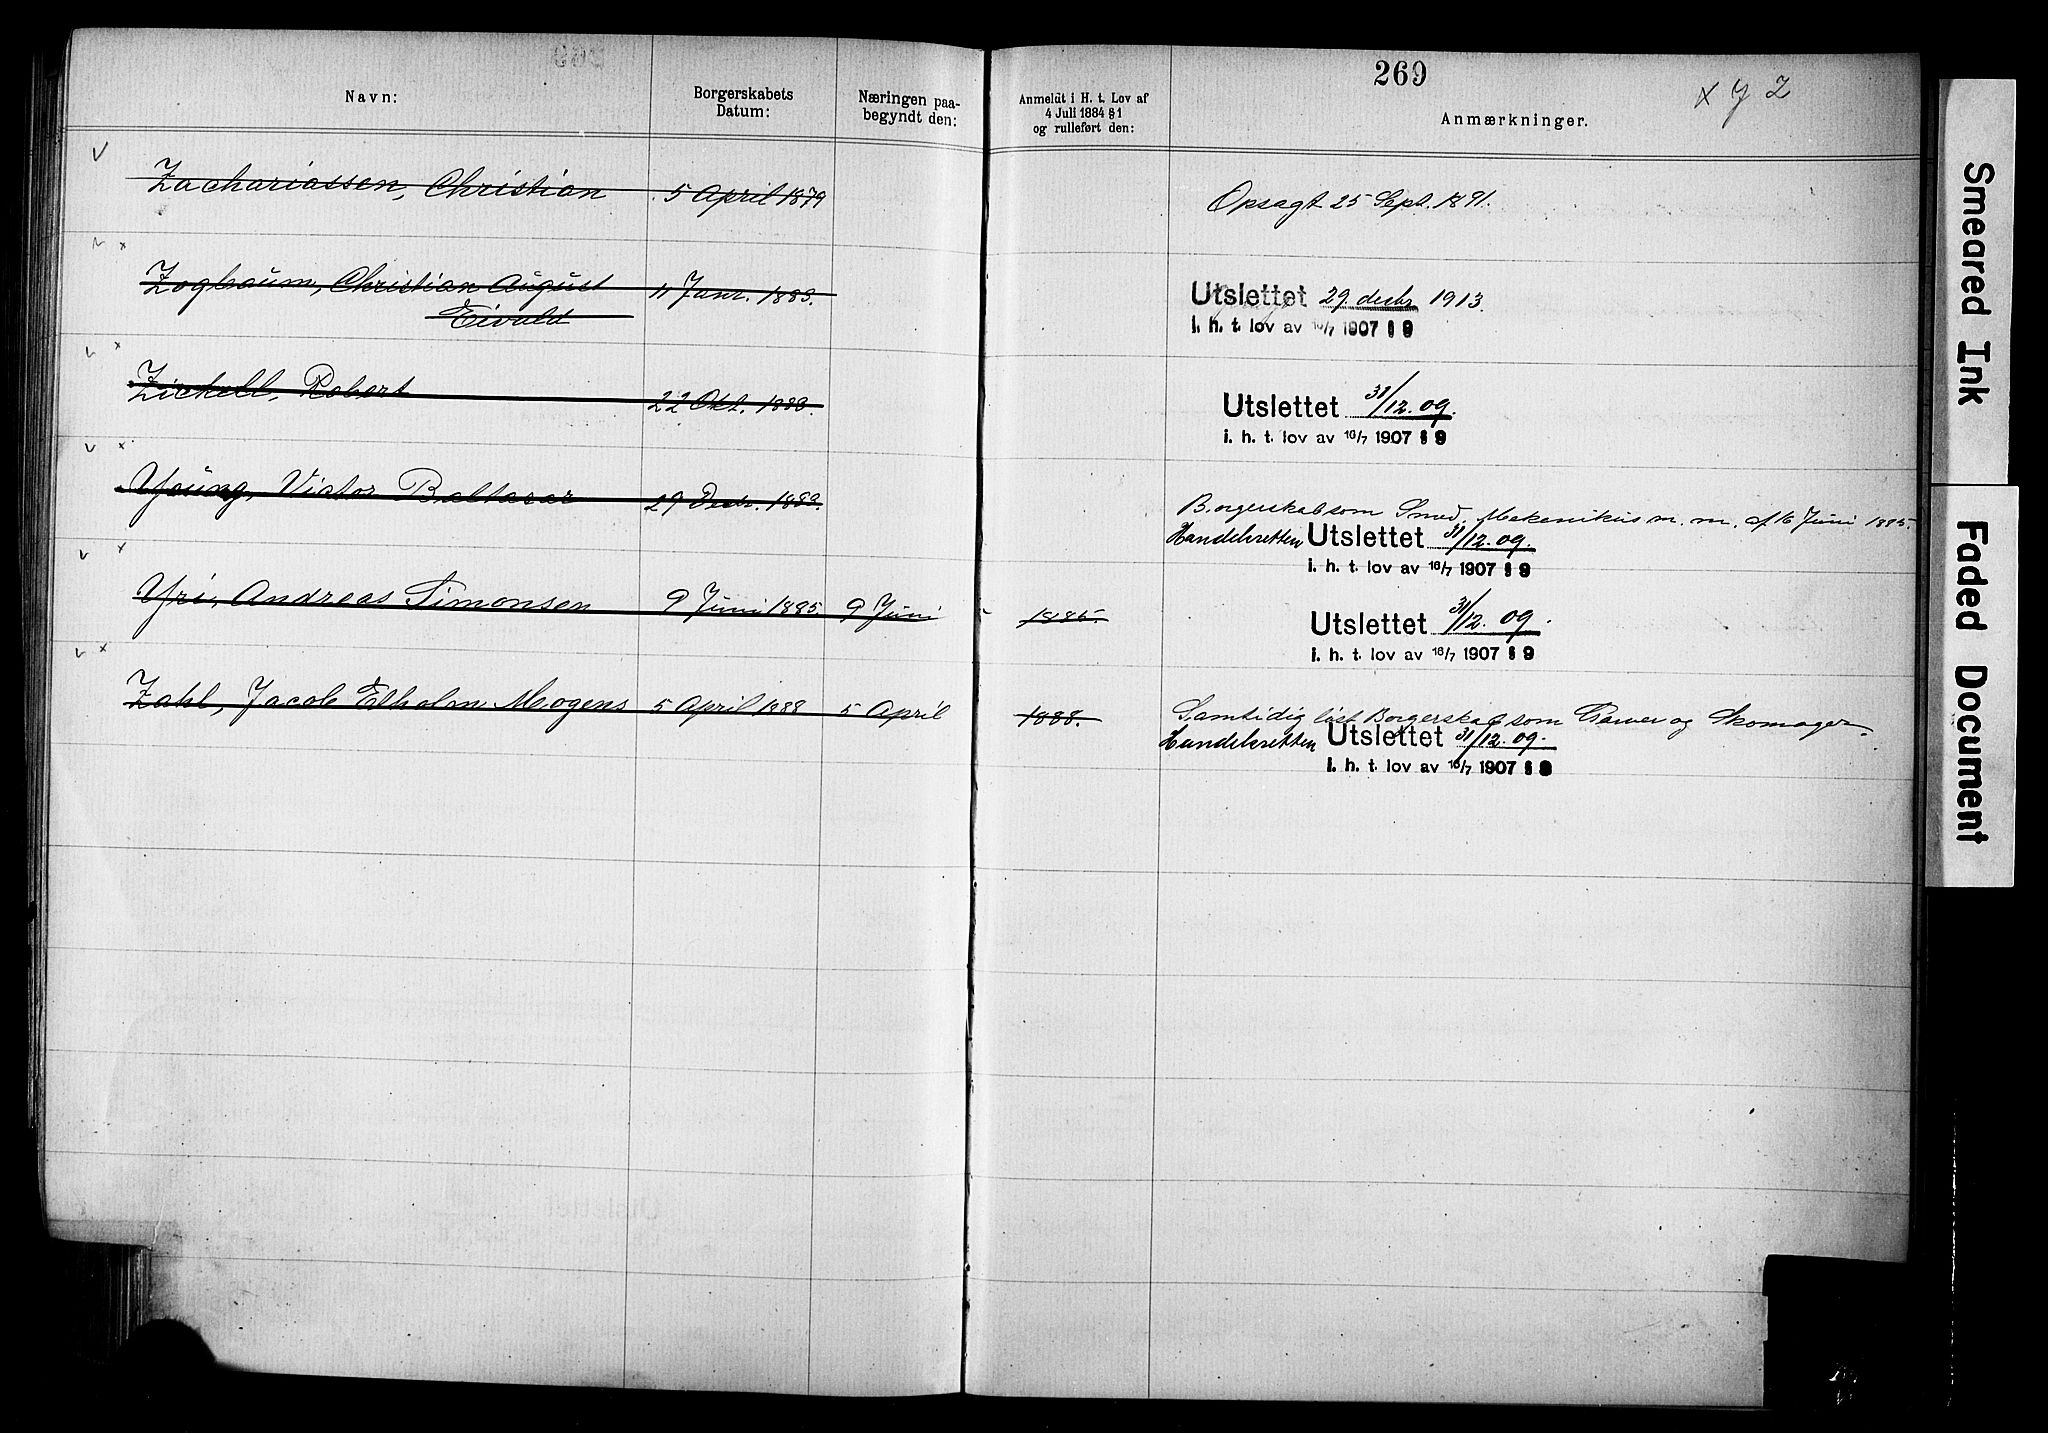 269
x y Z
Navn:
Borgerskabets
Datum:
Næringen paa-
begyndt den:
Anmeldt i H. t. Lov af
4 Juli 1884 § 1
og rulleført den:
Anmærkninger.
Zachariassen, Christian 5 April 1879 Opsagt 25 Sept. 1891.
Zogbaum, Christian August 11 Janr. 1883. Utslettet 29. desbr 1913.
Eivald
i. h. t. lov av 16/7 1907 § 9
Zickell, Robert 22 Okt. 1883. Utslettet 31/12. 09.
i. h. t. lov av 16/7 1907 § 9
Young, Victor Baltazar 29 Decbr. 1883. Borgerskab som Smed, Mekanikus m. m. af 16 Juni 1885.
Handelsretten Utslettet 31/12. 09.
i. h. t. lov av 16/7 1907 § 9
Yri, Andreas Simonsen 9 Juni 1885 9 Juni 1885. Utslettet 31/12. 09.
i. h. t. lov av 16/7 1907 § 9
Zahl, Jacob Etholm Mogens 5 April 1888 5 April 1888. Samtidig løst Borgerskab som Garver og Skomager.
Handelsretten Utslettet 31/12. 09.
i. h. t. lov av 16/7 1907 § 9
Smeared Ink
Faded Document